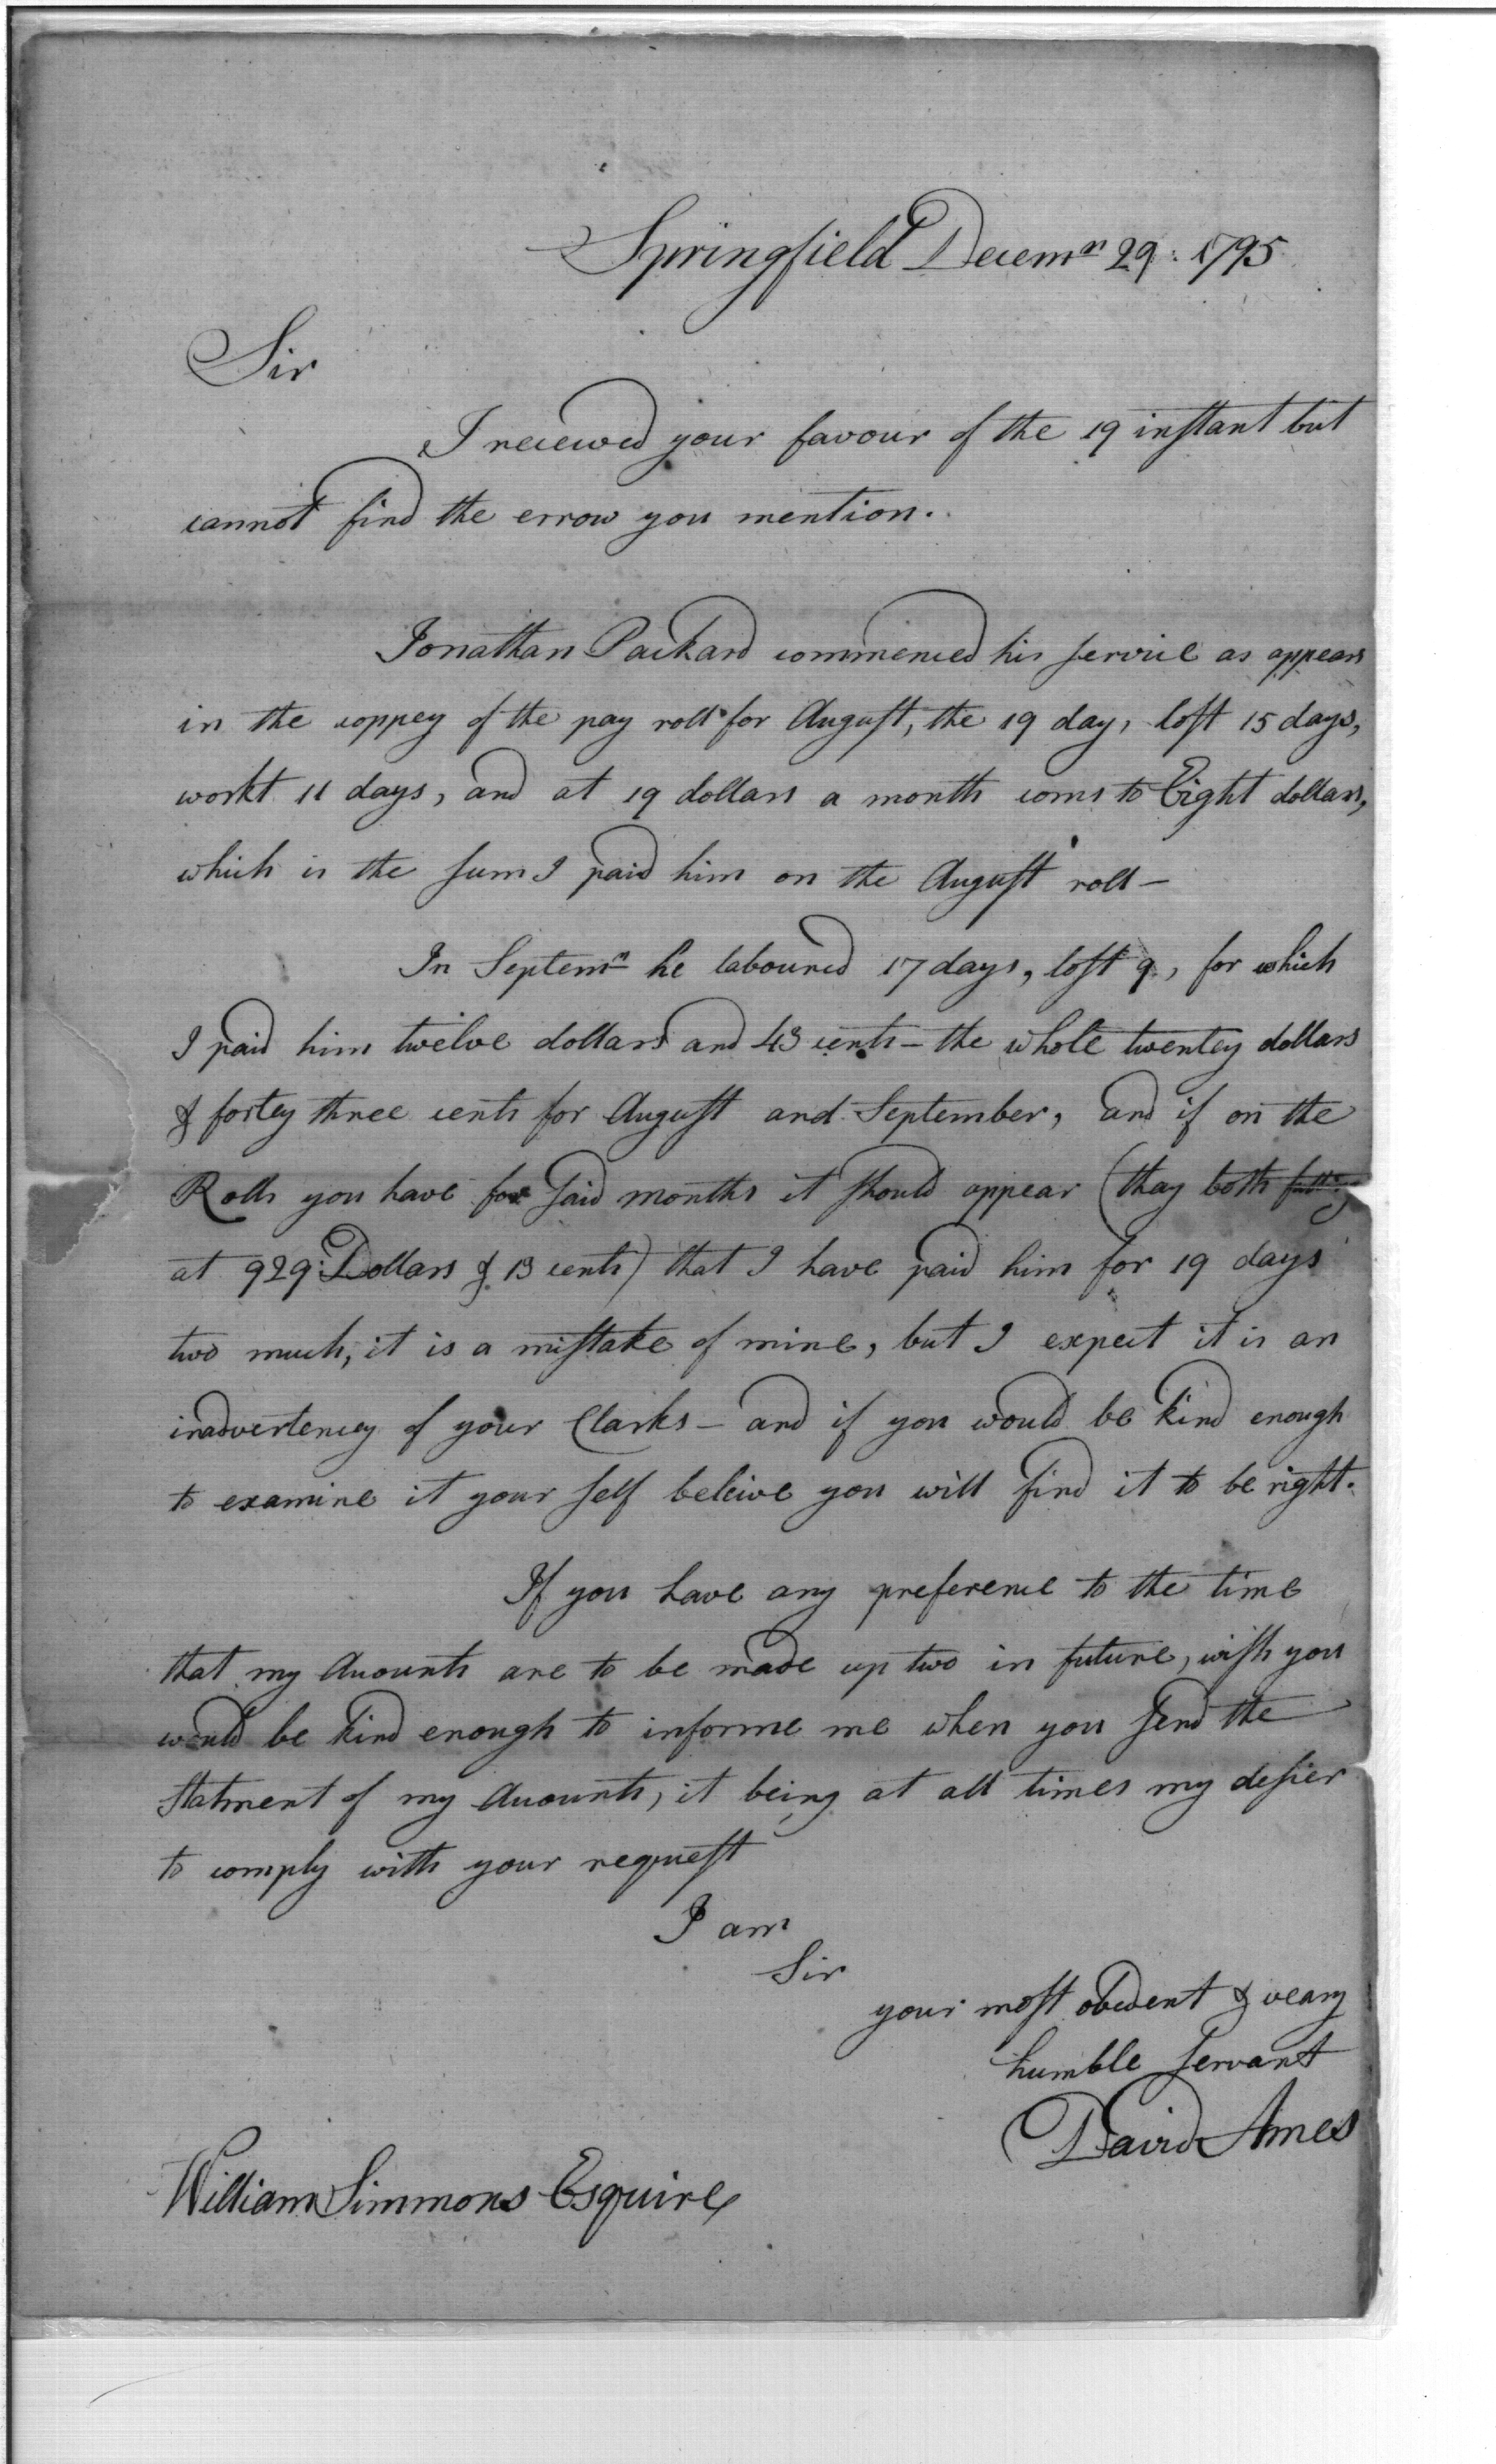 Springfield Decemr 29: 1795
Sir
I received your favour of the 19 instant but
cannot find the error you mention.
Jonathan Packard commenced his service as appears
in the coppey of the pay roll for August, the 19 day, lost 15 days,
workt 11 days, and at 19 dollars a month coms to Eight dollars,
which is the sum I paid him on the August roll—
In Septemr he laboured 17 days, lost 9, for which
I paid him twelve dollars and 43 cents — the whole twentey dollars
& fortey three cents for August and September, and if on the
Rolls you have for said months it should appear (thay both
at 929: Dollars & 13 cents) that I have paid him for 19 days
two much, it is a mistake of mine, but I expect it is an
inadvertencey of your Clarks — and if you would be kind enough
to examine it your self beleive you will find it to be right.
If you have any preference to the time
that my Accounts are to be made up two in future, wish you
would be kind enough to informe me when you send the
statment of my Accounts, it being at all times my desier
to comply with your request
I am
Sir
your most obedent & veary
humble servant
David Ames
William Simmons Esquire